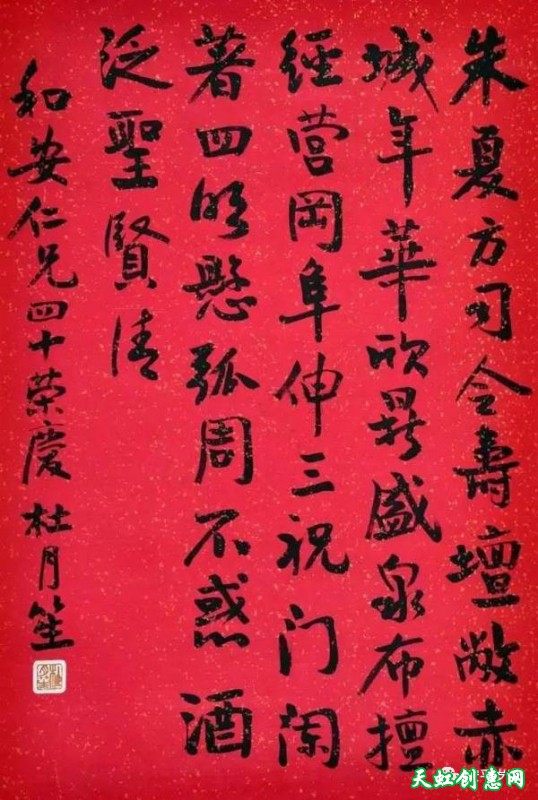 朱夏方司令壽壇敞赤
城年華欣鼎盛泉布擅
經营岡阜伸三祝门
著四明懸弧周不惑酒
泛聖賢清
和安仁兄四十荣慶 杜月笙
天虹创惠网